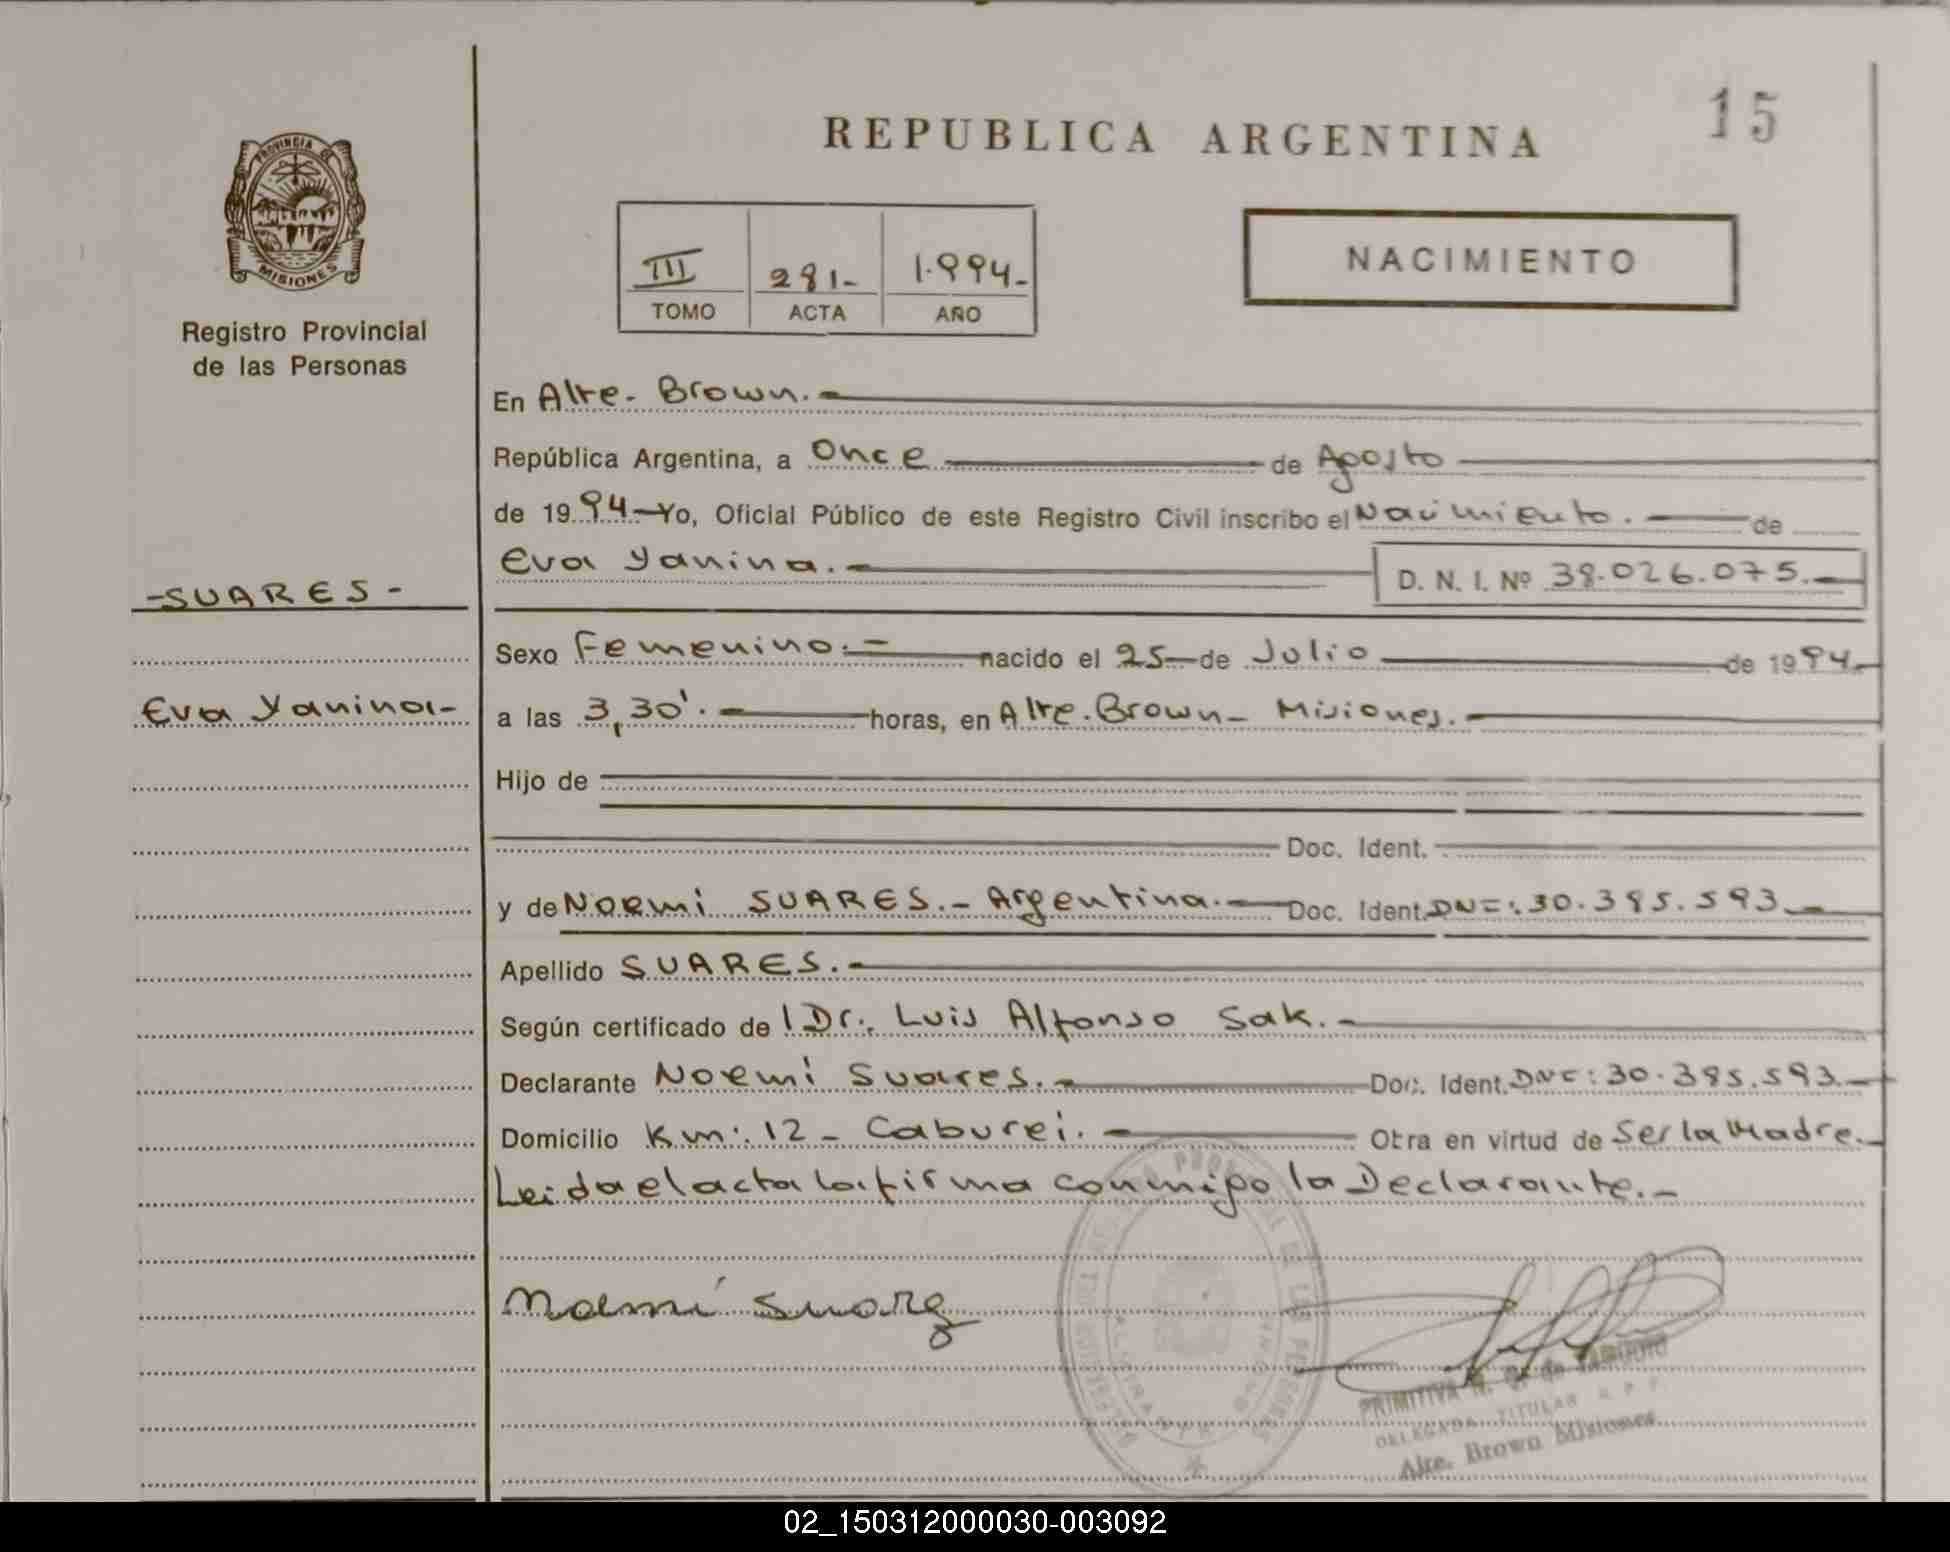 15
REPUBLICA ARGENTINA
PROVINCIA DE
MISIONES
Registro Provincial
de las Personas
III 281- 1.994-
TOMO ACTA AÑO
NACIMIENTO
En Alte. Brown.-
República Argentina, a Once de Agosto
de 1994- Yo, Oficial Público de este Registro Civil inscribo el Nacimiento. - de
Eva Yanina.- D. N. I. Nº 38.026.075.-
-SUARES-
Sexo Femenino.- nacido el 25 de Julio de 1994.-
Eva Yanina-
a las 3,30'.- horas, en Alte. Brown- Misiones.-
Hijo de
Doc. Ident.
y de Noemí SUARES.- Argentina.- Doc. Ident. DNI: 30.385.593.-
Apellido SUARES.-
Según certificado de l Dr. Luis Alfonso Sak.-
Declarante Noemí Suares.- Doc. Ident. DNI: 30.385.593.-
Domicilio Km: 12 - Caburei.- Otra en virtud de Ser la Madre.-
Leida el acta la firma conmigo la Declarante.-
Noemí Suarez
PRIMITIVA
DELEGADA TITULAR R. P. P.
Alte. Brown Misiones
02_150312000030-003092